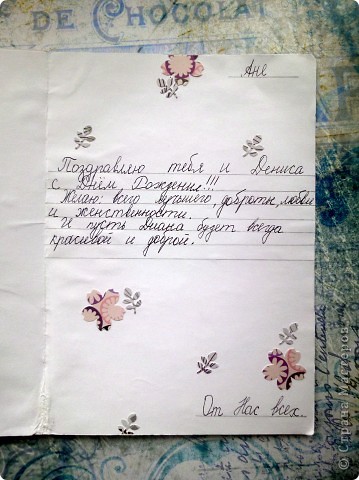 DE CHOCOLAT
Ане
Поздравляю тебя и Дениса
с Днём Рождение!!!
Желаю: всего лучшего, доброты, любви
и женственности.
И пусть Диана будет всегда
красивой и доброй.
От Нас всех.
© Страна Мастеров